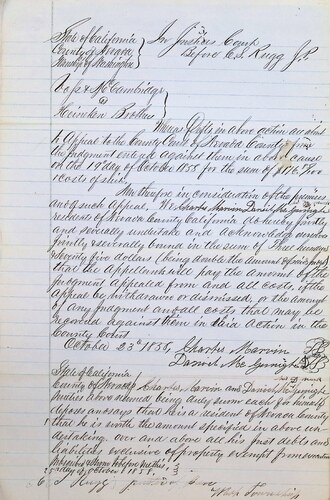 State of California } In Justices Court
County of Nevada } Before C. S. Rugg J.P.
Township of Washington }
Voss & McCambridge
vs
Heinsken Brothers
Whereas Defts in above action
Appeal to the County Court of Nevada County from
the Judgment entered against them in above cause
on the 19th day of October 1858 for the sum of
& costs of suit
Now therefore in consideration of the premises
and of such appeal. We Charles Marvin Daniel
residents of Nevada County California do hereby firstly
and severally undertake and acknowledge ourselves
jointly & severally bound in the sum of Three hundred
& seventy five dollars (being double the amount of said judgt)
that the Appellants will pay the amount of the
Judgment appealed from and all costs, if the
appeal be withdrawn or dismissed, or the amount
of any Judgment and all costs that may be
recovered against them in said action in the
County Court
October 23d 1858, Charles Marvin
Daniel
State of California
County of Nevada } Charles Marvin and Daniel
sureties above named being duly sworn each for himself
deposes and says that he is a resident of Nevada County
that he is worth the amount specified in above un
dertaking. over and above all his just debts and
liabilities exclusive of property exempt from execution
Subscribed & sworn to before me this
day of October 1858.
C. S. Rugg Justice
Township